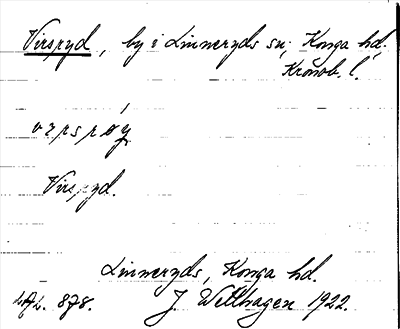 Virspyd, by i Linneryds sn, Konga hd.
Kronob. l.
Virspyd.
Linneryds, Konga hd.
878. J. Welthagen 1922.